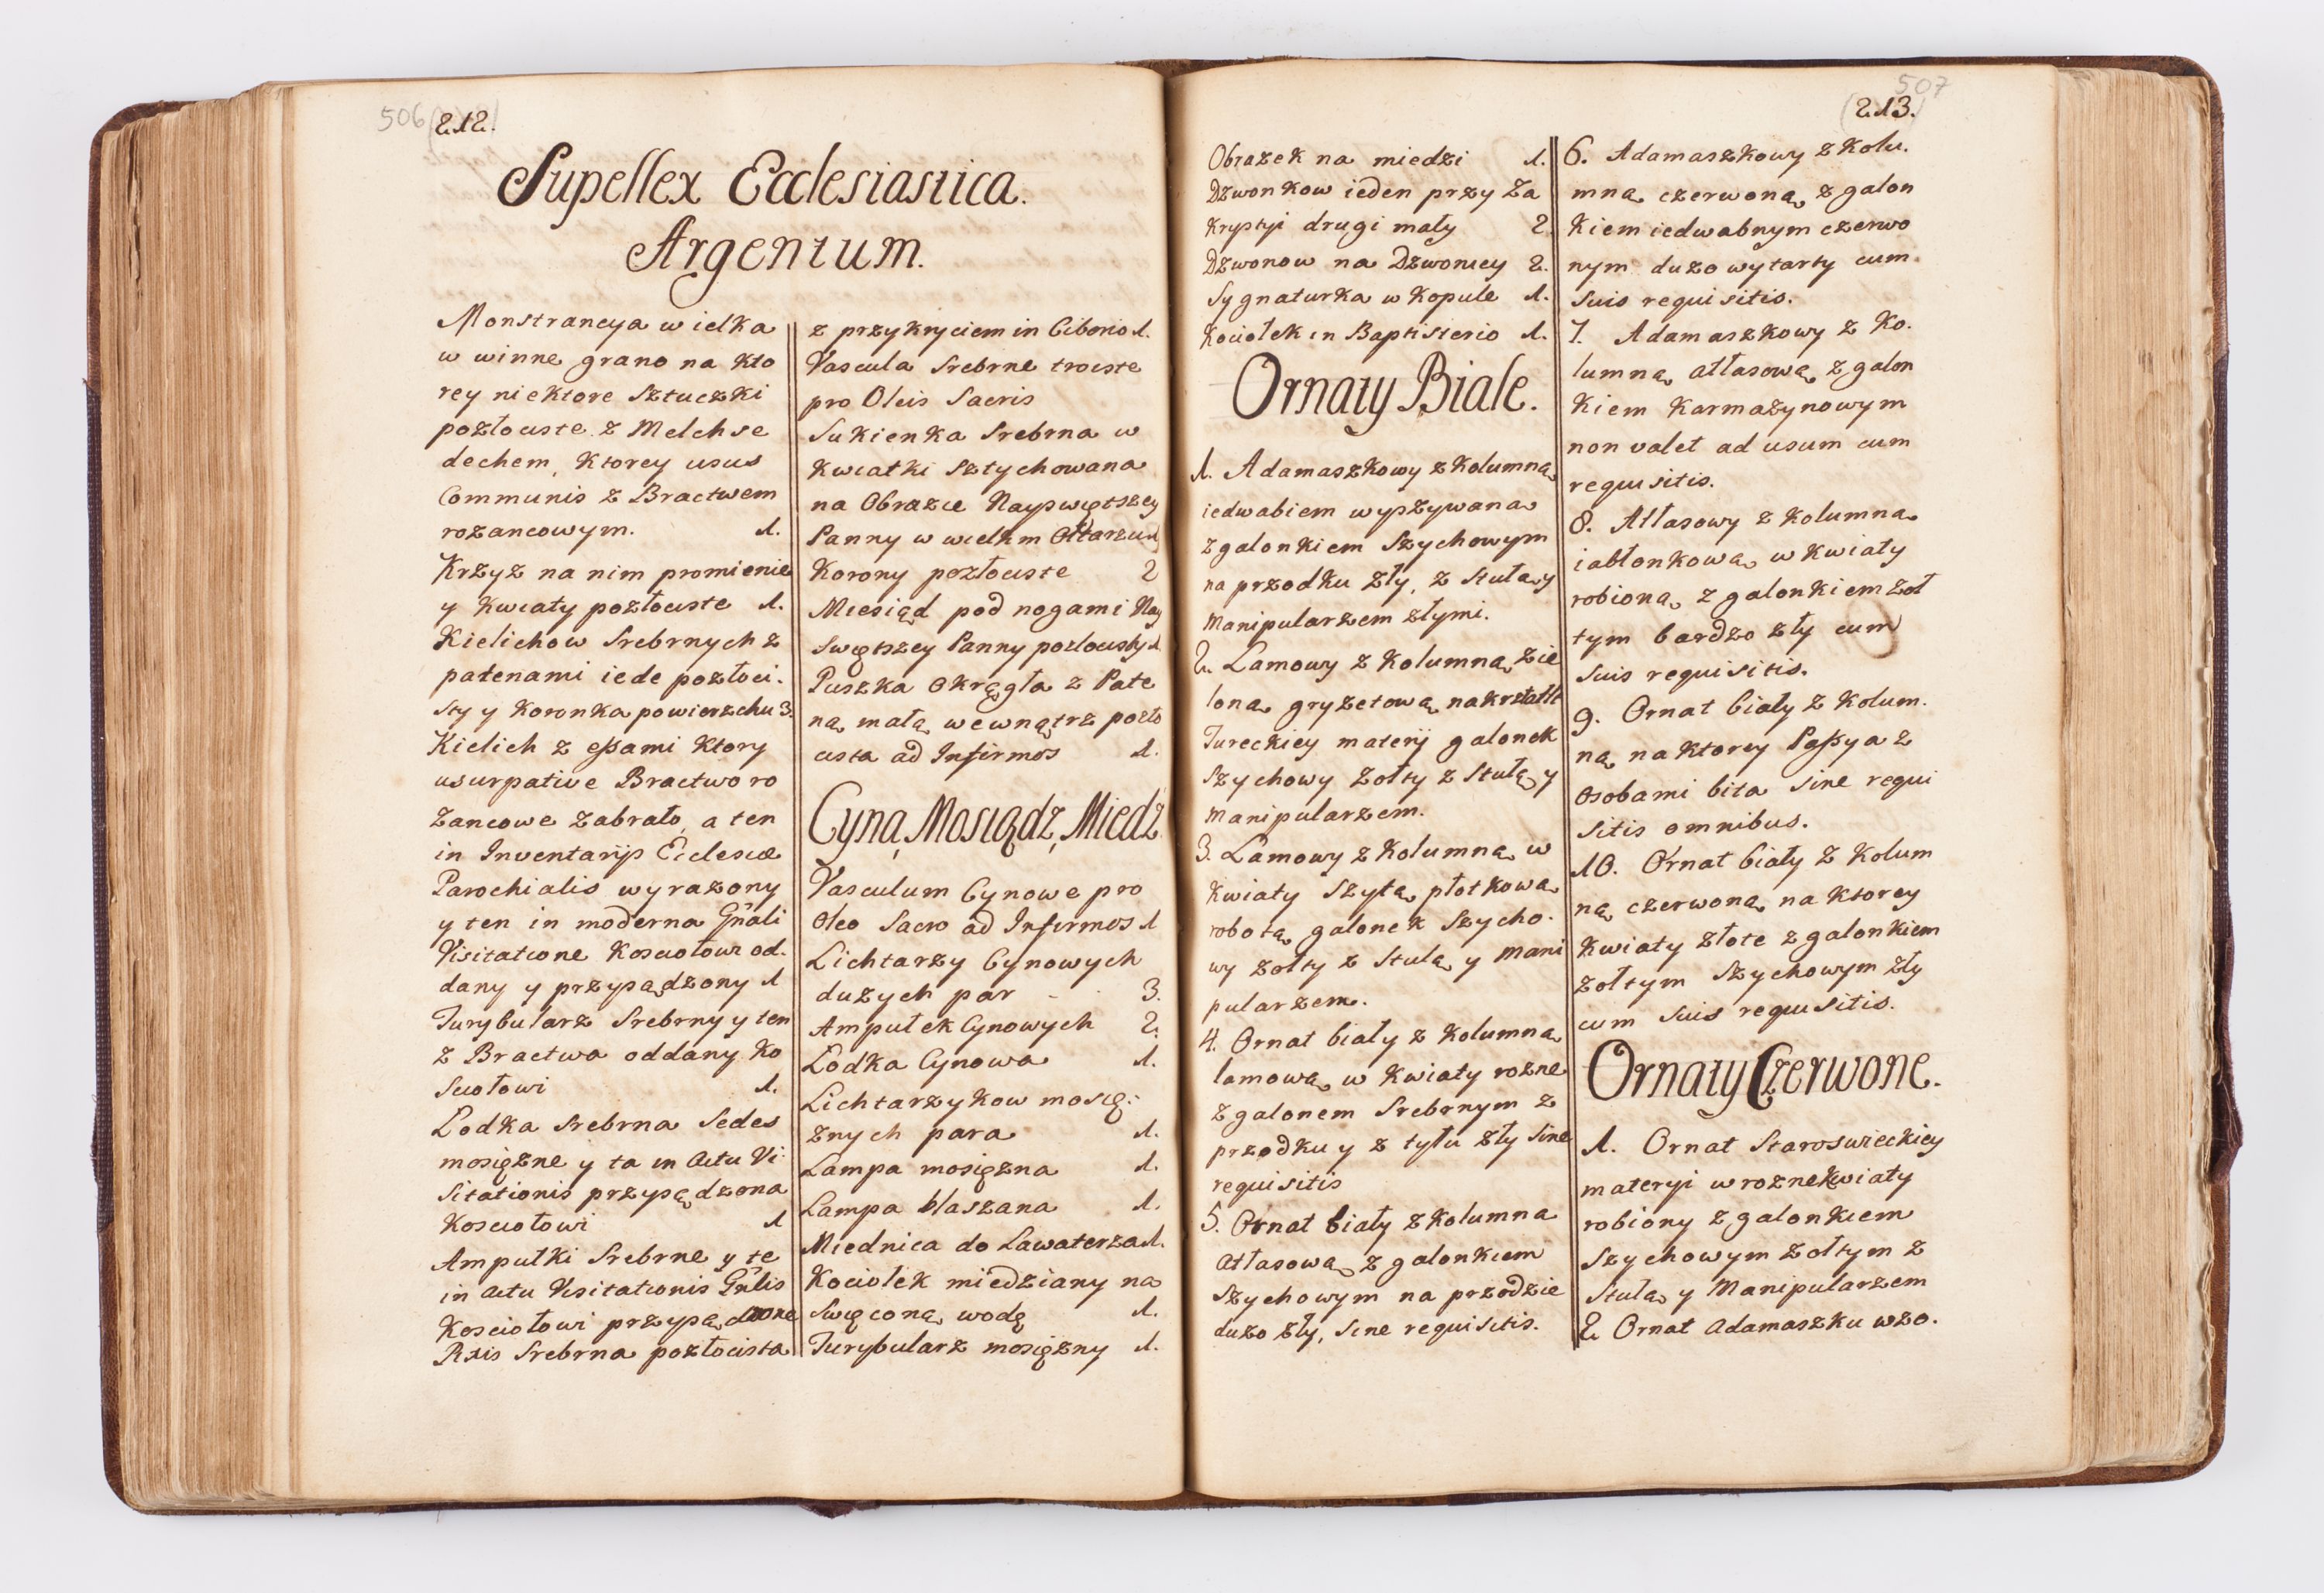 506
212.
Supellex Ecclesiastica.
Argentum.
Monstrancya wielka
w winne grano na kto
rey niektore Sztuczki
pozłociste z Melchse
dechem, Ktorey usus
Communis z Bractwem
rozancowym. 1.
Krzyz na nim promienie
y Kwiaty pozłociste 1.
Kielichow Srebrnych z
patenami iede pozłoci.
sty y Koronka powierzchu 3.
Kielich z eßami Ktory
usurpative Bractwo ro
zancowe zabrało, a ten
in Inventarijs Eclesiæ
Parochialis wyrazony
y ten in moderna Gñali
Visitatione Kosciołowi od.
dany y przysądzony 1
Turybularz Srebrny y ten
z Bractwa oddany Ko
sciołowi 1.
Łodka Srebrna Sedes
mosięzne y ta in Actu Vi
sitationis przysądzona
Kosciołowi 1
Ampułki Srebrne y te
in Actu Visitationis Gñlis
Kosciołowi przysądzone
Pixis Srebrna pozłocista
z przykryciem in Ciborio 1.
Vascula Srebrne troiste
pro Oleis Sacris
Sukienka Srebrna w
Kwiatki Sztychowana
na Obrazie Nayswiętszey
Panny w wielkim Ołtarzu 1
Korony pozłociste 2
Miesiąd pod nogami Nay
swiętszey Panny pozłocisty 1
Puszka okrągła z Pate
ną małą wewnątrz pozło
cista ad Infirmos 1.
Cyna, Mosiądz, Miedź
Vasculum Cynowe pro
Oleo Sacro ad Infirmos 1
Lichtarzy Cynowych
duzych par - . 3.
Ampułek Cynowych 2.
Łodka Cynowa 1.
Lichtarzykow mosię.
znych para 1.
Lampa mosięzna 1.
Lampa blaszana 1.
Miednica do Lawaterza 1.
Kociołek miedziany na
Swięconą wodę 1.
Turybularz mosięzny 1.
507
213.
Obrazek na miedzi 1.
Dzwonkow ieden przy Za
krystyi drugi mały 2.
Dzwonow na Dzwonicy 2.
Sygnaturka w Kopule 1.
Kociołek in Baptisterio 1.
Ornaty Białe.
1. Adamaszkowy z Kolumną
iedwabiem wyszywana
z galonkiem Szychowym
na przodku zły, z Stułą y
Manipularzem złymi.
2. Lamowy z Kolumną zie
loną gryzetową nakrztałt
Tureckiey materij galonek
Szychowy zołty z Stułą y
manipularzem.
3. Lamowy z Kolumną w
Kwiaty Szytą płotkową
robotą galonek Szycho.
wy zołty z Stułą y Mani
pularzem.
4. Ornat biały z Kolumną
lamową w Kwiaty rozne
z galonem Srebrnym z
przodku y z tyłu zły Sine
requisitis
5. Ornat biały z Kolumną
Atłasową z galonkiem
Szychowym na przodzie
duzo zły, Sine requisitis.
6. Adamaszkowy z Kolu.
mną czerwoną z galon
kiem iedwabnym czerwo
nym duzo wytarty cum
Suis requisitis.
7. Adamaszkowy z Ko.
lumną atłasową z galon
kiem Karmazynowym
non valet ad usum cum
requisitis.
8. Atłasowy z Kolumną
iabłonkową w Kwiaty
robioną z galonkiem zoł
tym bardzo zły cum
Suis requisitis.
9. Ornat biały z Kolum.
ną na ktorey Paßya z
osobami bita Sine requi
sitis omnibus.
10. Ornat biały z Kolum
ną czerwoną na Ktorey
Kwiaty złote z galonkiem
zołtym Szychowym zły
cum Suis requisitis.
Ornaty Czerwone.
1. Ornat Staroswieckiey
materyi w roznekwiaty
robiony z galonkiem
Szychowym zołtym z
Stułą y Manipularzem
2. Ornat Adamaszku wzo.